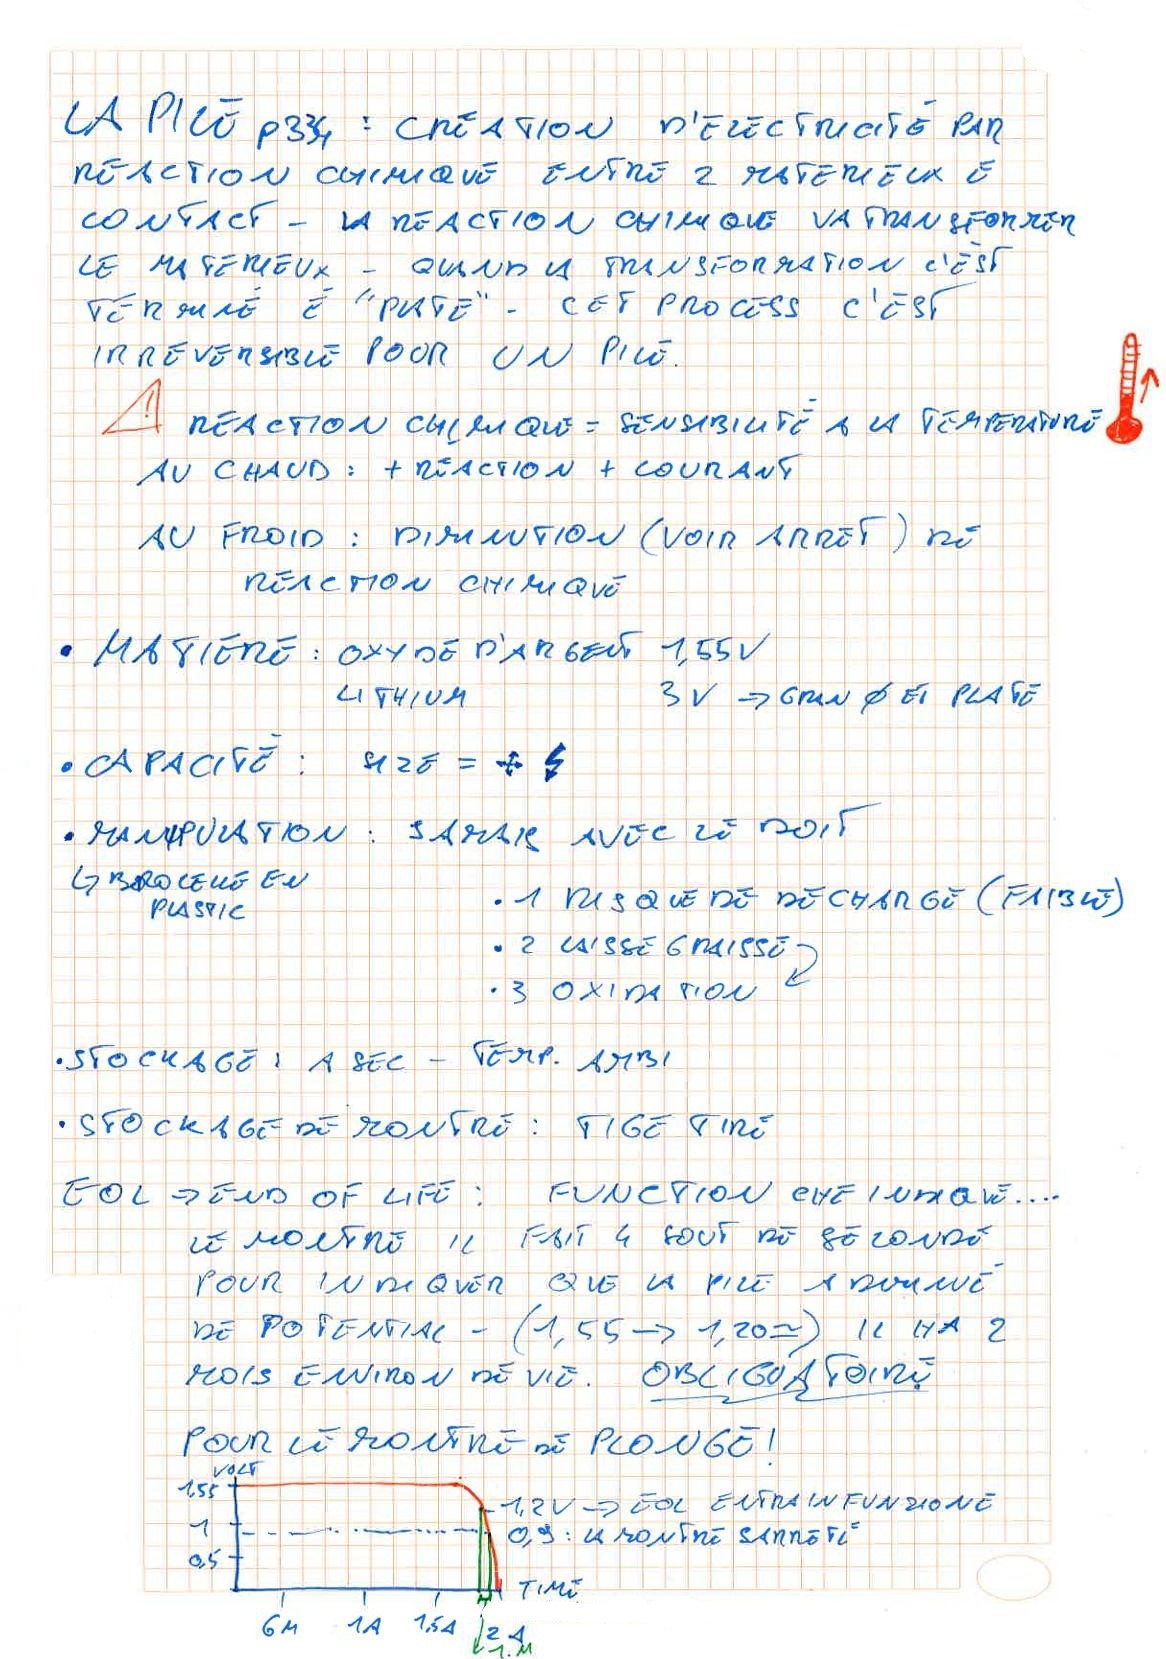 LA PILE p334 : CRÉATION D'ELECTRICITÉ PAR
RÉACTION CHIMIQUE ENTRE 2 MATERIEUX E
CONTACT - LA REACTION CHIMIQUE VA TRANSFORMER
LE MATERIEUX - QUAND LA TRANSFORMATION C'EST
TERMINÉ É "PLATE" - CET PROCESS C'EST
IRREVERSIBLE POUR UN PILE.
! REACTION CHIMIQUE = SENSIBILITÉ A LA TEMPERATURE
AU CHAUD : + REACTION + COURANT
AU FROID : DIMINUTION (VOIR ARRET) DE
REACTION CHIMIQUE
• MATIERE : OXYDE D'ARGENT 1,55V
LITHIUM 3V → GRAN Ø ET PLATE
• CAPACITÉ : SIZE = + ⚡
• MANIPULATION : JAMAIS AVEC LE DOIT
↳ BROCELLE EN
PLASTIC
• 1 RISQUE DE DECHARGE (FAIBLE)
• 2 LAISSE GRAISSE
• 3 OXIDATION
• STOCKAGE : A SEC - TEMP. AMBI
• STOCKAGE DE MONTRE : TIGE TIRE
EOL → END OF LIFE : FUNCTION CHE INDIQUE....
LE MONTRE IL FAIT 4 SOUT DE SECONDE
POUR INDIQUER QUE LA PILE A DIMINUÉ
DE POTENTIAL - (1,55 → 1,20≃) IL HA 2
MOIS ENVIRON DE VIE. OBLIGUATOIRE
POUR LE MONTRE DE PLONGE!
VOLT
1,55
1,2V → EOL ENTRA IN FUNZIONE
1
0,9 : LA MONTRE SARRETE
0,5
TIME
6M 1A 1,5A 2A
1.M